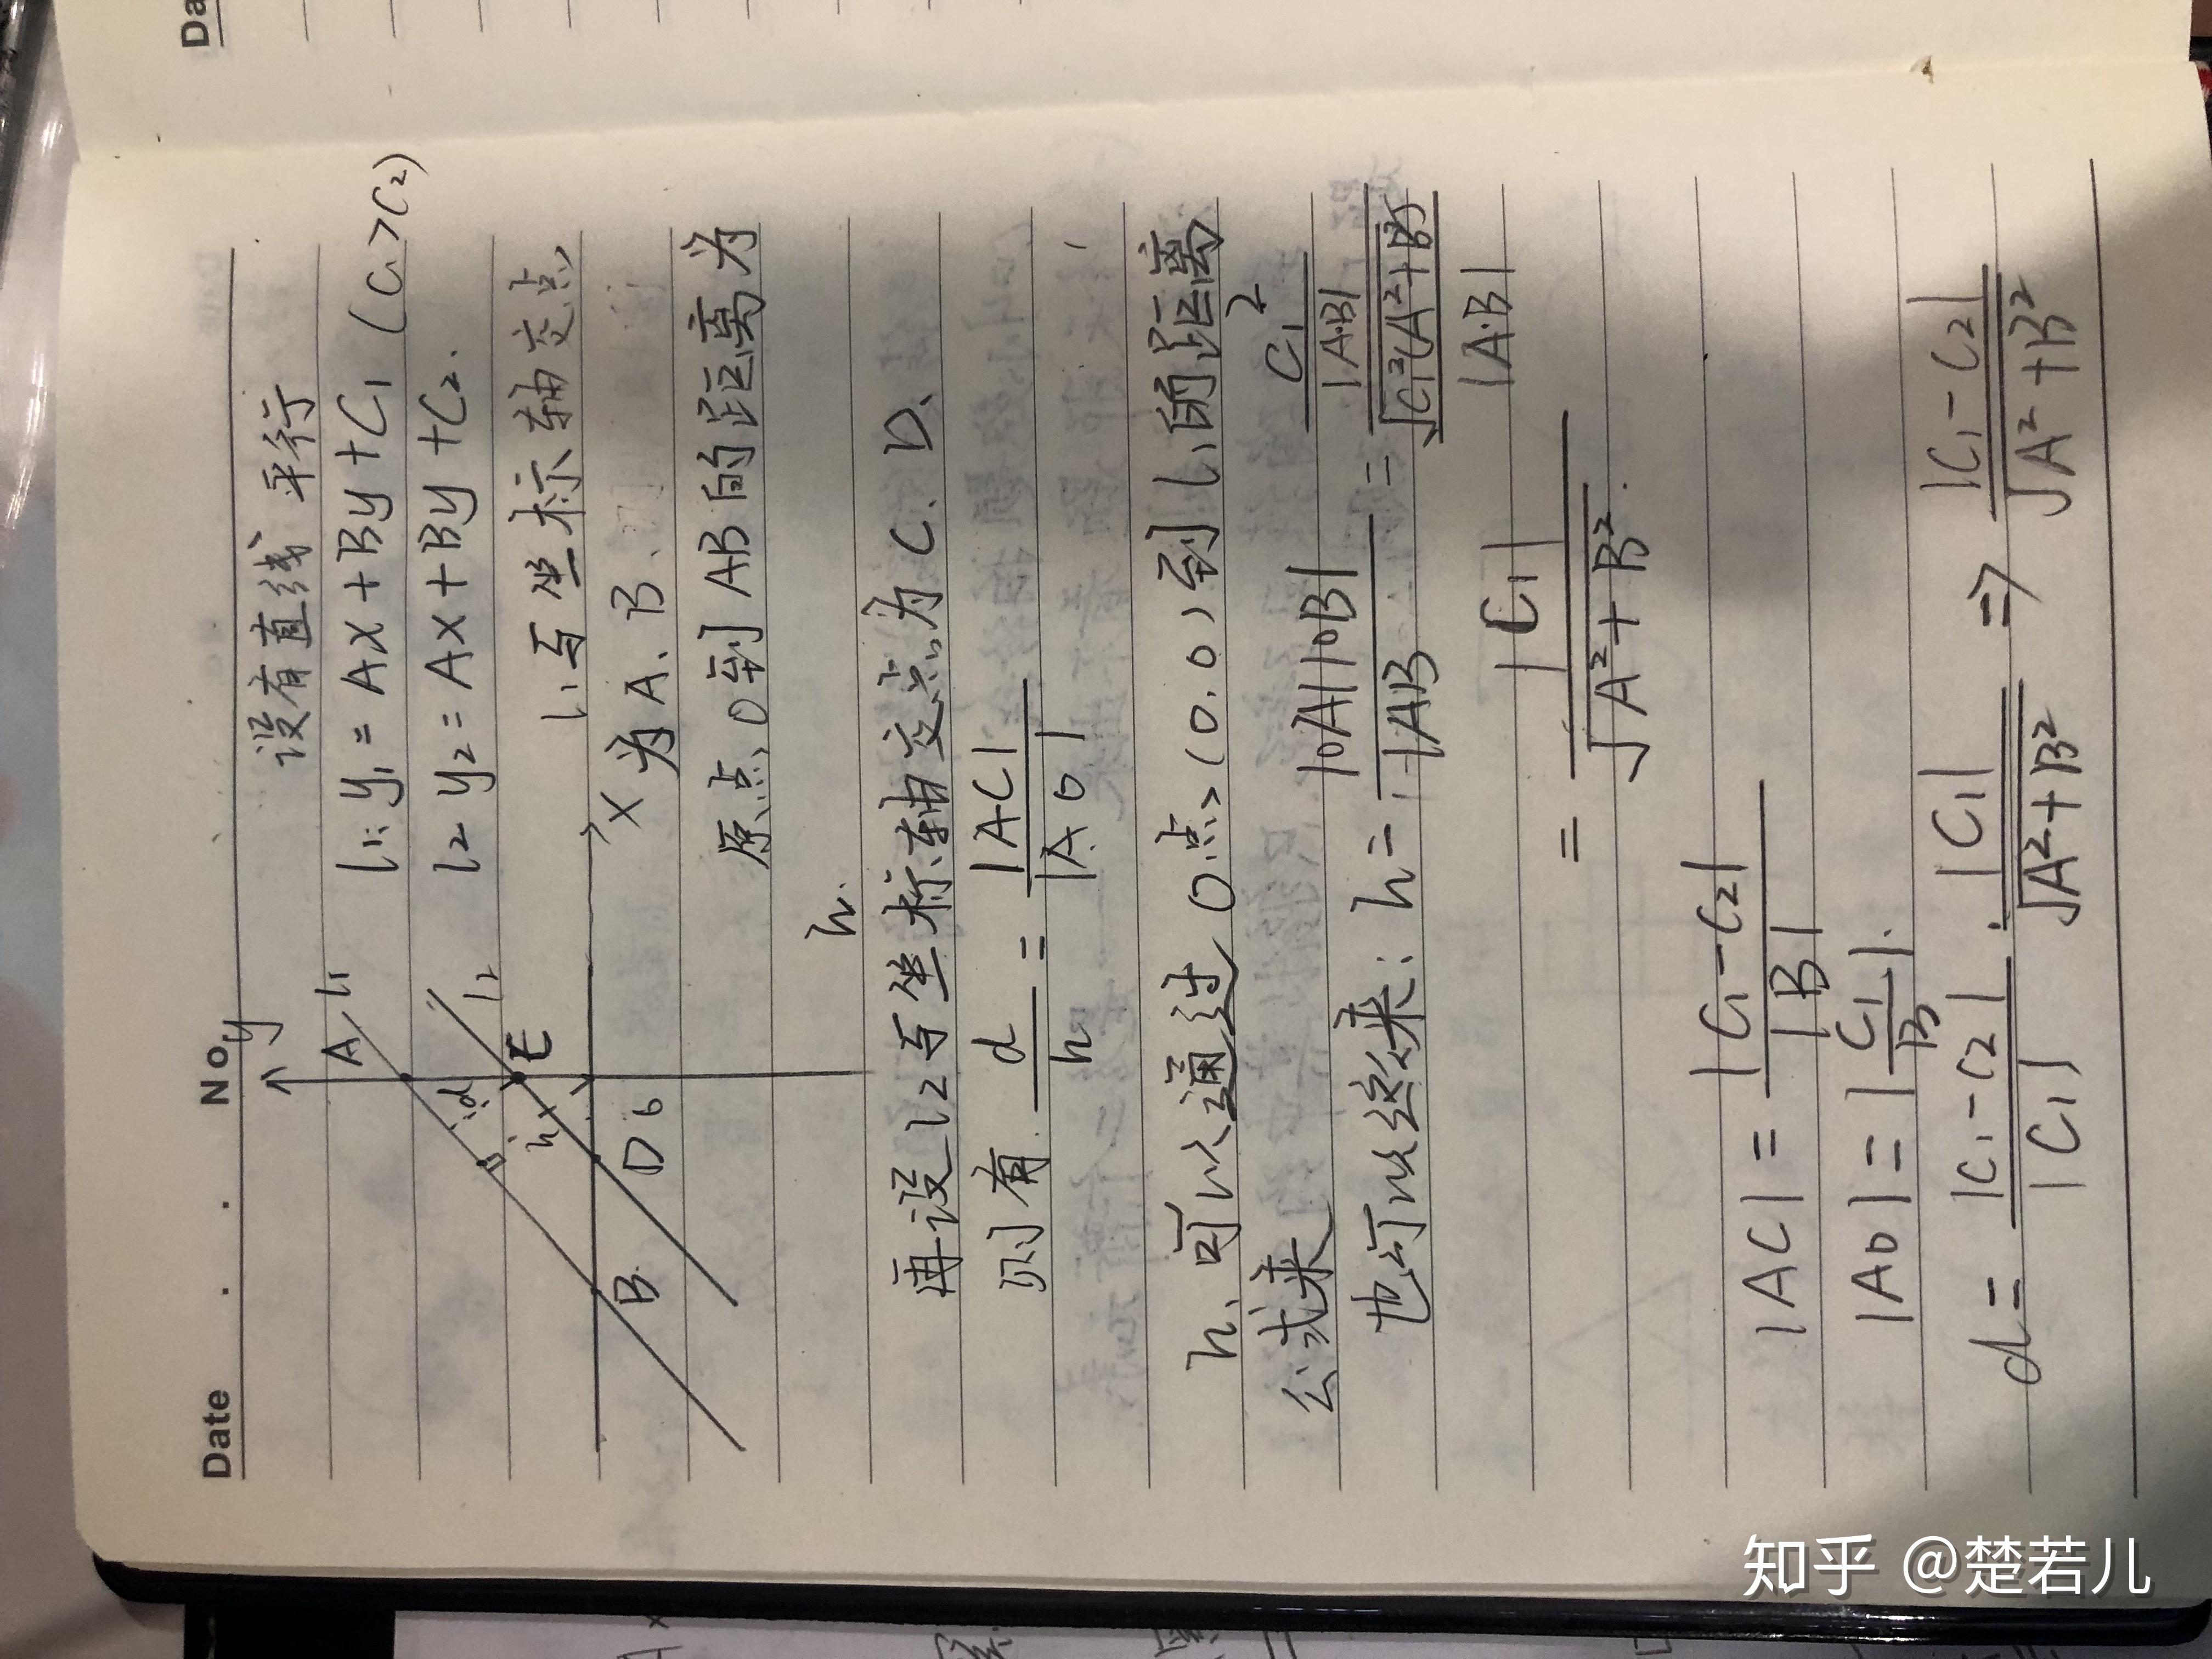 Da
Date . . No.
设有直线平行
l₁: y₁ = Ax + By + C₁ (C₁ > C₂)
l₂ y₂ = Ax + By + C₂.
l₁与坐标轴交点
为A、B、
原点O到AB的距离为
h.
y
A
l₁
d
l₂
E
h
x
B
D
再设l₂与坐标轴交点为C.D、
则有 d/h = |AC|/|AO|
h、可以通过O点(0.0)到l₁的距离
公式来
也可以这来: h = |OA||OB|/|AB| = (C₁²/|A·B|)/(√(C₁²(A²+B²))/|A·B|)
= |C₁|/√(A²+B²).
|AC| = |C₁-C₂|/|B|
|AO| = |C₁/B|.
d = |C₁-C₂|/|C₁| · |C₁|/√(A²+B²) ⇒ |C₁-C₂|/√(A²+B²)
知乎 @楚若儿